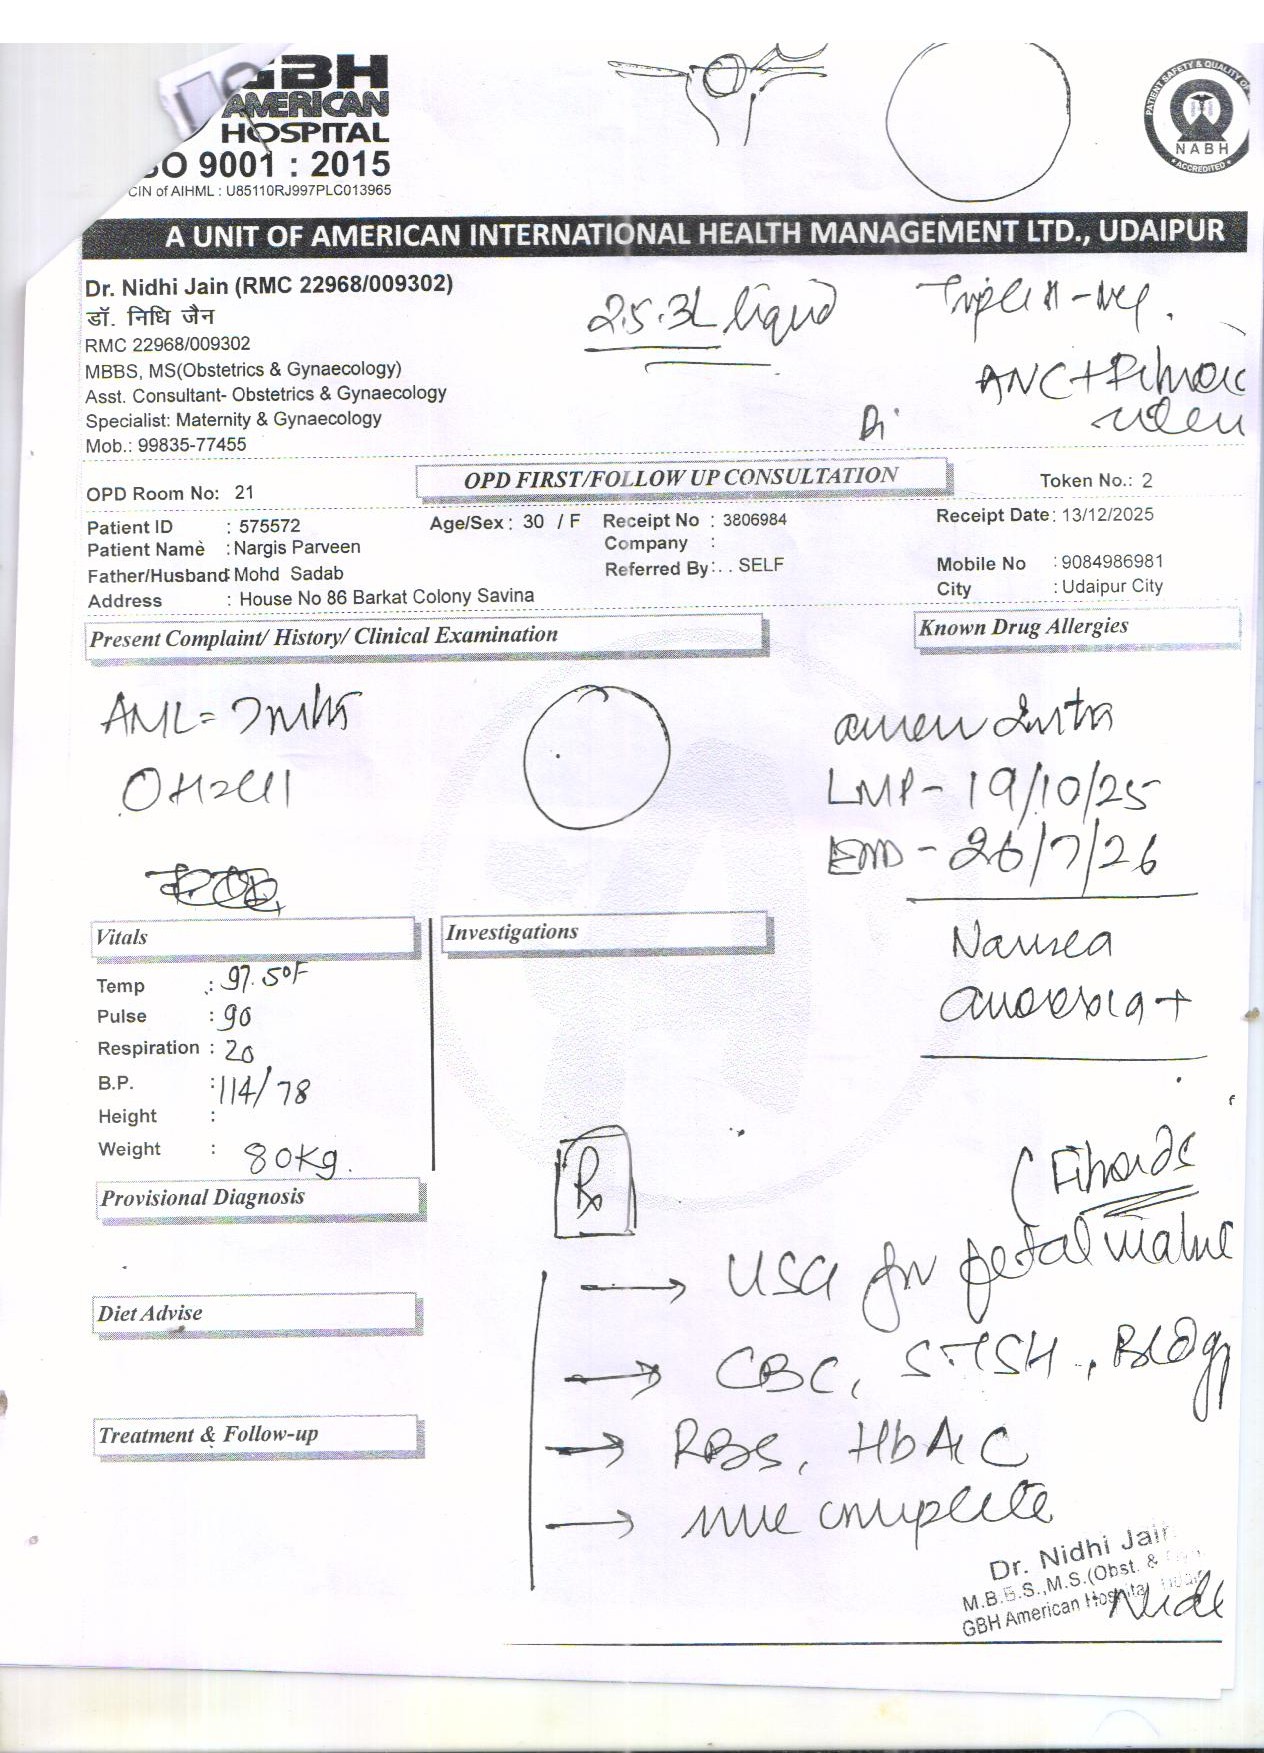 GBH
AMERICAN
HOSPITAL
ISO 9001 : 2015
CIN of AIHML : U85110RJ997PLC013965
PATIENT SAFETY & QUALITY OF
NABH
ACCREDITED
A UNIT OF AMERICAN INTERNATIONAL HEALTH MANAGEMENT LTD., UDAIPUR
Dr. Nidhi Jain (RMC 22968/009302)
डॉ. निधि जैन
RMC 22968/009302
MBBS, MS(Obstetrics & Gynaecology)
Asst. Consultant- Obstetrics & Gynaecology
Specialist: Maternity & Gynaecology
Mob.: 99835-77455
2.5.3L liquid
Triple H -
ANC +
OPD Room No: 21
OPD FIRST/FOLLOW UP CONSULTATION
Token No.: 2
Patient ID : 575572 Age/Sex : 30 / F Receipt No : 3806984 Receipt Date: 13/12/2025
Patient Name : Nargis Parveen Company :
Father/Husband: Mohd Sadab Referred By: . . SELF Mobile No : 9084986981
Address : House No 86 Barkat Colony Savina City : Udaipur City
Present Complaint/ History/ Clinical Examination
Known Drug Allergies
AML =
LMP - 19/10/25
EDD - 26/7/26
Nausea
anorexia +
Vitals
Investigations
Temp : 97.5°F
Pulse : 90
Respiration : 20
B.P. : 114/78
Height :
Weight : 80kg.
Provisional Diagnosis
Diet Advise
Treatment & Follow-up
Rx
(Fibroids
→ USG for fetal
→ CBC, S.TSH., Bldgp
→ RBS, HbA1C
→ complete
Dr. Nidhi Jain
M.B.B.S.,M.S.(Obst. &
GBH American Hospital
Nidhi